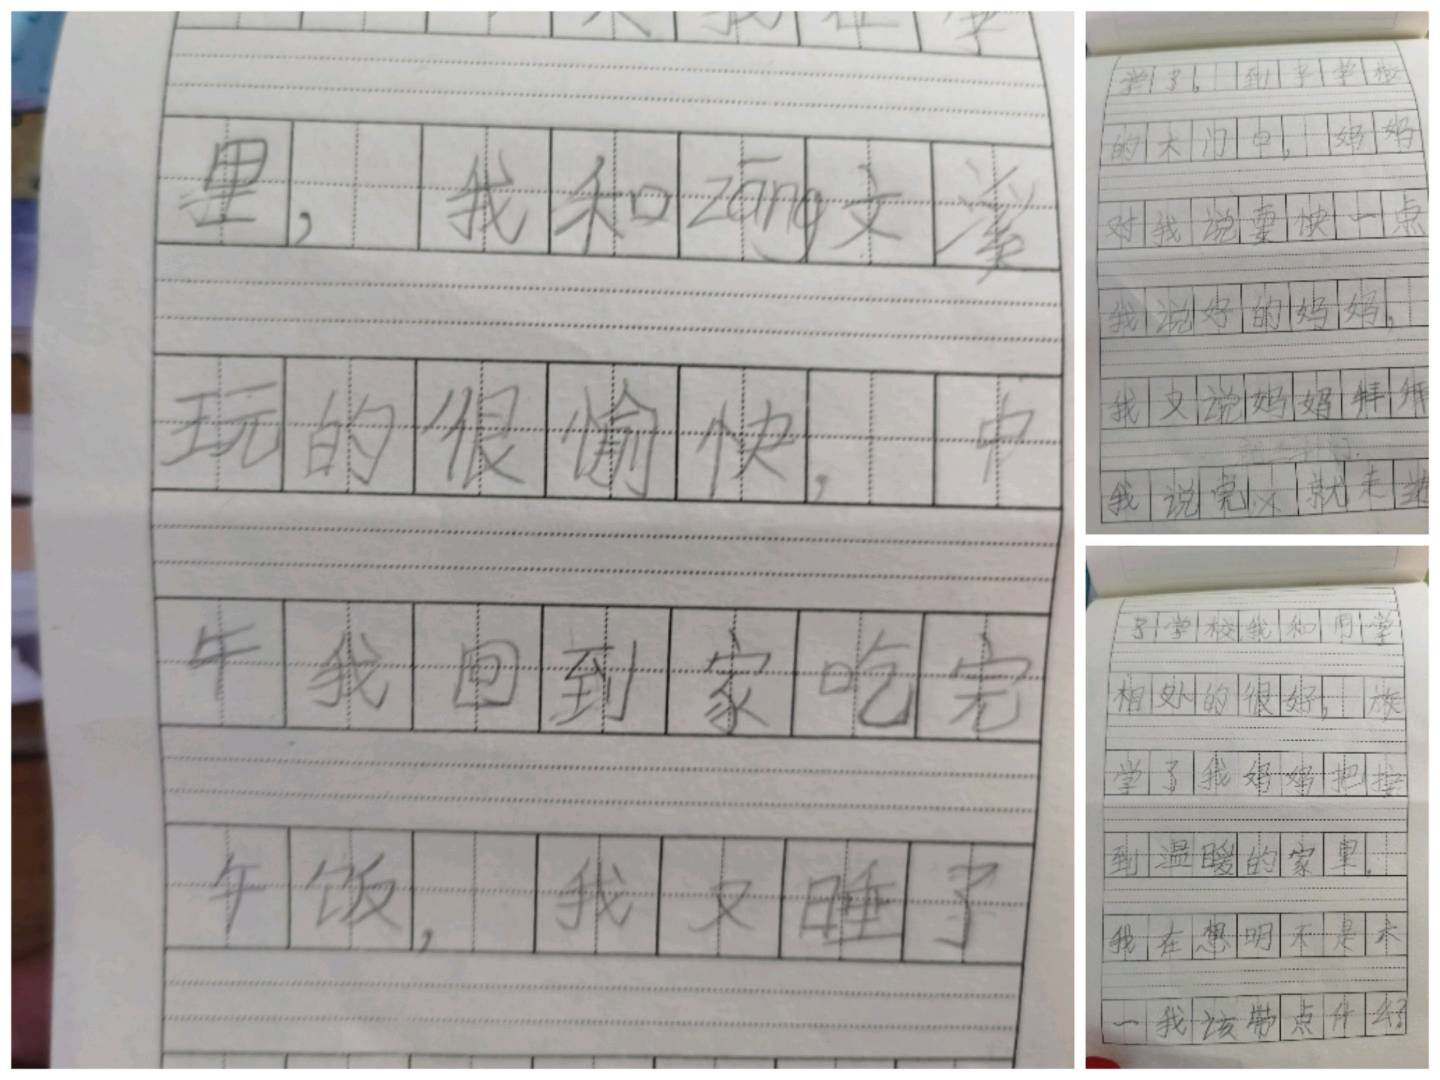 我在学
里，我和zāng文
玩的很愉快，中
午我回到家吃完
午饭，我又睡了
学了，到了学校
的大门口，妈妈
对我说要快一点
我说好的妈妈，
我又说妈妈拜拜
我说完 就来
了学校我和同学
相处的很好，放
学了我妈妈把接
到温暖的家里.
我在想明不是未
一我该带点什